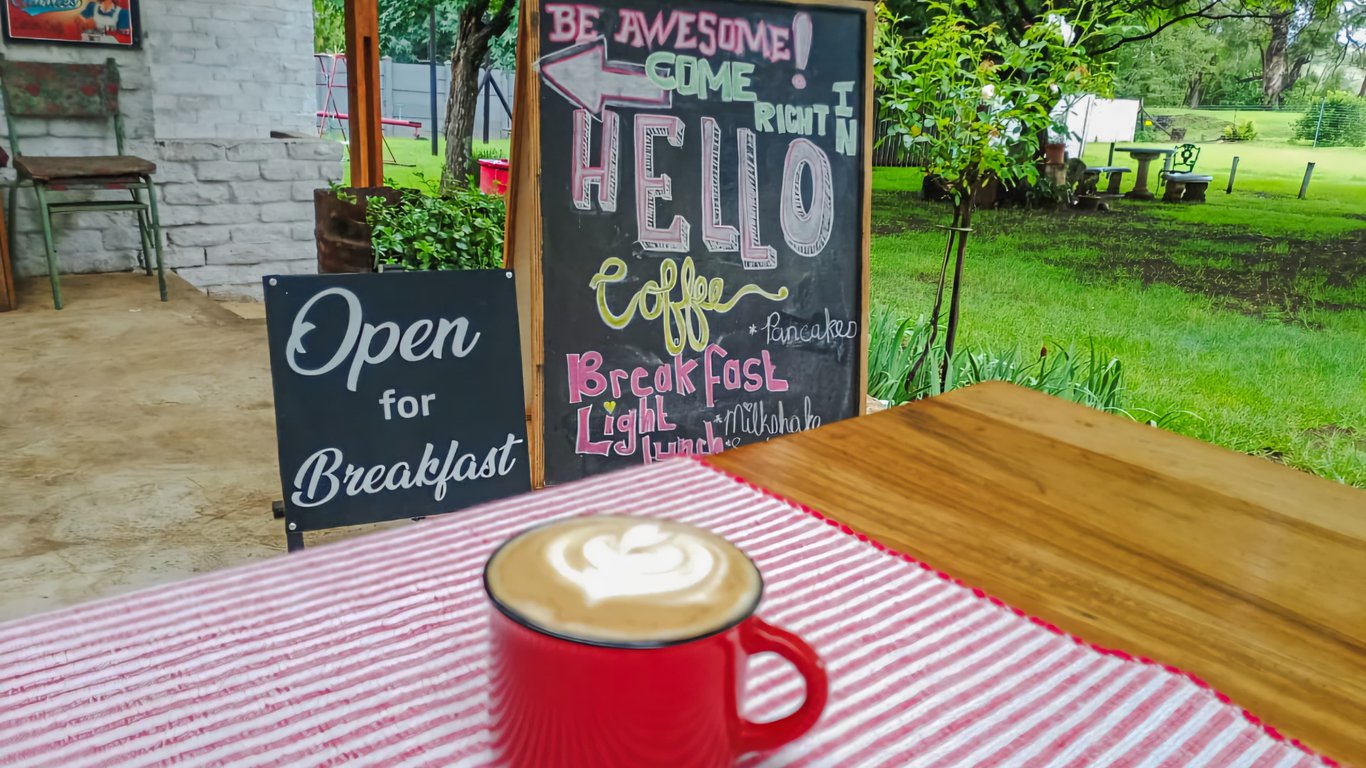 BE AWESOME!
COME
RIGHT IN
HELLO
Coffee
*Pancakes
Breakfast
Light
*Milkshake
lunch
Open
for
Breakfast